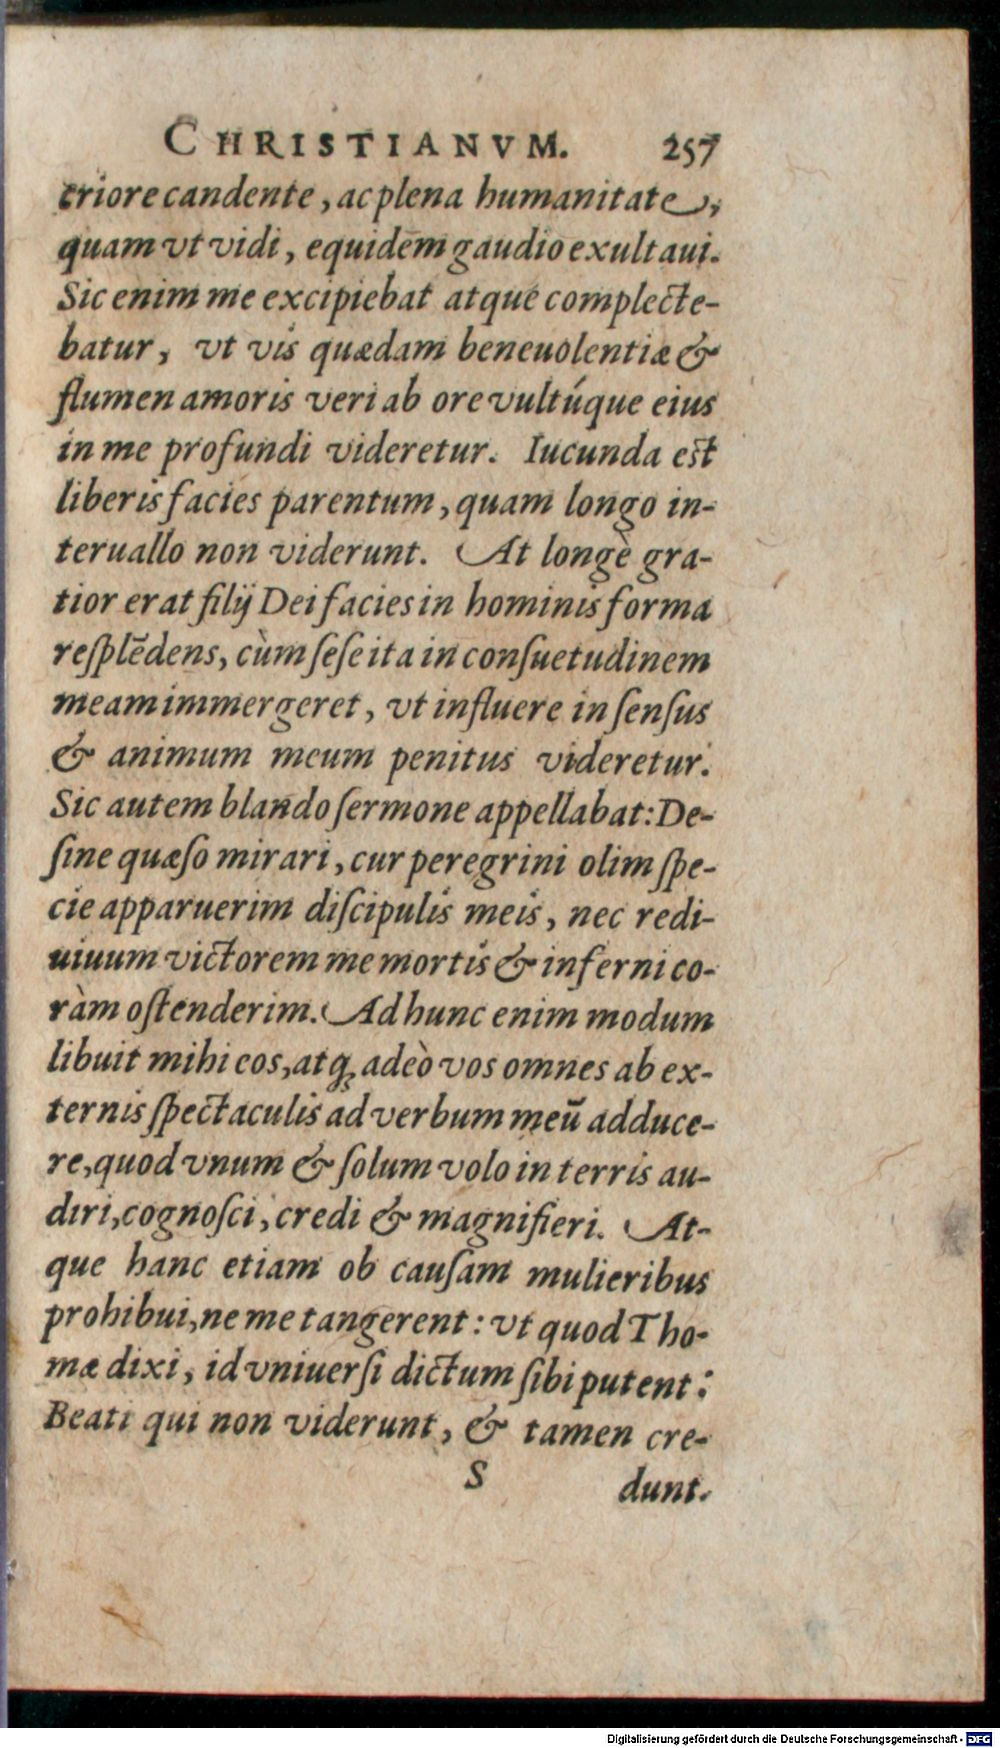 CHRISTIANVM. 257
criore candente, ac plena humanitate,
quam vt vidi, equidem gaudio exultaui.
Sic enim me excipiebat atque complecte-
batur, vt vis quædam beneuolentiæ &
flumen amoris veri ab ore vultúque eius
in me profundi videretur. Iucunda est
liberis facies parentum, quam longo in-
teruallo non viderunt. At longè gra-
tior erat filij Dei facies in hominis forma
reſplēdens, cùm ſeſe ita in conſuetudinem
meam immergeret, vt influere in ſenſus
& animum meum penitus videretur.
Sic autem blando ſermone appellabat: De-
ſine quæſo mirari, cur peregrini olim ſpe-
cie apparuerim diſcipulis meis, nec redi-
uiuum victorem me mortis & inferni co-
ràm oſtenderim. Ad hunc enim modum
libuit mihi eos, atq; adeò vos omnes ab ex-
ternis ſpectaculis ad verbum meū adduce-
re, quod vnum & ſolum volo in terris au-
diri, cognoſci, credi & magnifieri. At-
que hanc etiam ob cauſam mulieribus
prohibui, ne me tangerent: vt quod Tho-
mæ dixi, id vniuerſi dictum ſibi putent:
Beati qui non viderunt, & tamen cre-
S dunt.
Digitalisierung gefördert durch die Deutsche Forschungsgemeinschaft - DFG